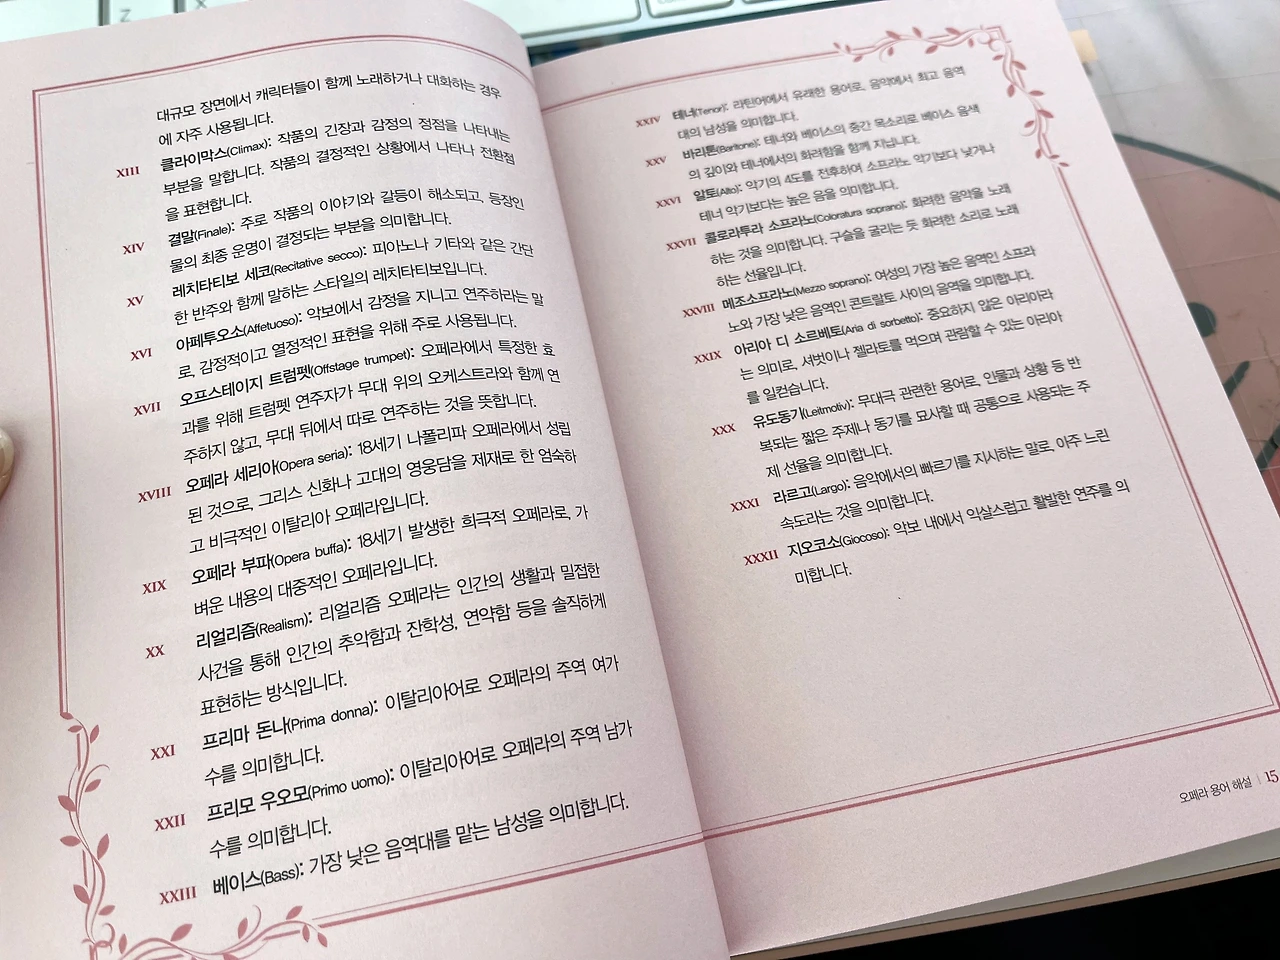 대규모 장면에서 캐릭터들이 함께 노래하거나 대화하는 경우
에 자주 사용됩니다.
XIII 클라이막스(Climax): 작품의 긴장과 감정의 정점을 나타내는
부분을 말합니다. 작품의 결정적인 상황에서 나타나 전환점
을 표현합니다.
XIV 결말(Finale): 주로 작품의 이야기와 갈등이 해소되고, 등장인
물의 최종 운명이 결정되는 부분을 의미합니다.
XV 레치타티보 세코(Recitative secco): 피아노나 기타와 같은 간단
한 반주와 함께 말하는 스타일의 레치타티보입니다.
XVI 아페투오소(Affetuoso): 악보에서 감정을 지니고 연주하라는 말
로, 감정적이고 열정적인 표현을 위해 주로 사용됩니다.
XVII 오프스테이지 트럼펫(Offstage trumpet): 오페라에서 특정한 효
과를 위해 트럼펫 연주자가 무대 위의 오케스트라와 함께 연
주하지 않고, 무대 뒤에서 따로 연주하는 것을 뜻합니다.
XVIII 오페라 세리아(Opera seria): 18세기 나폴리파 오페라에서 성립
된 것으로, 그리스 신화나 고대의 영웅담을 제재로 한 엄숙하
고 비극적인 이탈리아 오페라입니다.
XIX 오페라 부파(Opera buffa): 18세기 발생한 희극적 오페라로, 가
벼운 내용의 대중적인 오페라입니다.
XX 리얼리즘(Realism): 리얼리즘 오페라는 인간의 생활과 밀접한
사건을 통해 인간의 추악함과 잔학성, 연약함 등을 솔직하게
표현하는 방식입니다.
XXI 프리마 돈나(Prima donna): 이탈리아어로 오페라의 주역 여가
수를 의미합니다.
XXII 프리모 우오모(Primo uomo): 이탈리아어로 오페라의 주역 남가
수를 의미합니다.
XXIII 베이스(Bass): 가장 낮은 음역대를 맡는 남성을 의미합니다.
XXIV 테너(Tenor): 라틴어에서 유래한 용어로, 음악에서 최고 음역
대의 남성을 의미합니다.
XXV 바리톤(Baritone): 테너와 베이스의 중간 목소리로 베이스 음색
의 깊이와 테너에서의 화려함을 함께 지닙니다.
XXVI 알토(Alto): 악기의 4도를 전후하여 소프라노 악기보다 낮거나
테너 악기보다는 높은 음을 의미합니다.
XXVII 콜로라투라 소프라노(Coloratura soprano): 화려한 음악을 노래
하는 것을 의미합니다. 구슬을 굴리는 듯 화려한 소리로 노래
하는 선율입니다.
XXVIII 메조소프라노(Mezzo soprano): 여성의 가장 높은 음역인 소프라
노와 가장 낮은 음역인 콘트랄토 사이의 음역을 의미합니다.
XXIX 아리아 디 소르베토(Aria di sorbetto): 중요하지 않은 아리아라
는 의미로, 셔벗이나 젤라토를 먹으며 관람할 수 있는 아리아
를 일컫습니다.
XXX 유도동기(Leitmotiv): 무대극 관련한 용어로, 인물과 상황 등 반
복되는 짧은 주제나 동기를 묘사할 때 공통으로 사용되는 주
제 선율을 의미합니다.
XXXI 라르고(Largo): 음악에서의 빠르기를 지시하는 말로, 아주 느린
속도라는 것을 의미합니다.
XXXII 지오코소(Giocoso): 악보 내에서 익살스럽고 활발한 연주를 의
미합니다.
오페라 용어 해설 | 15